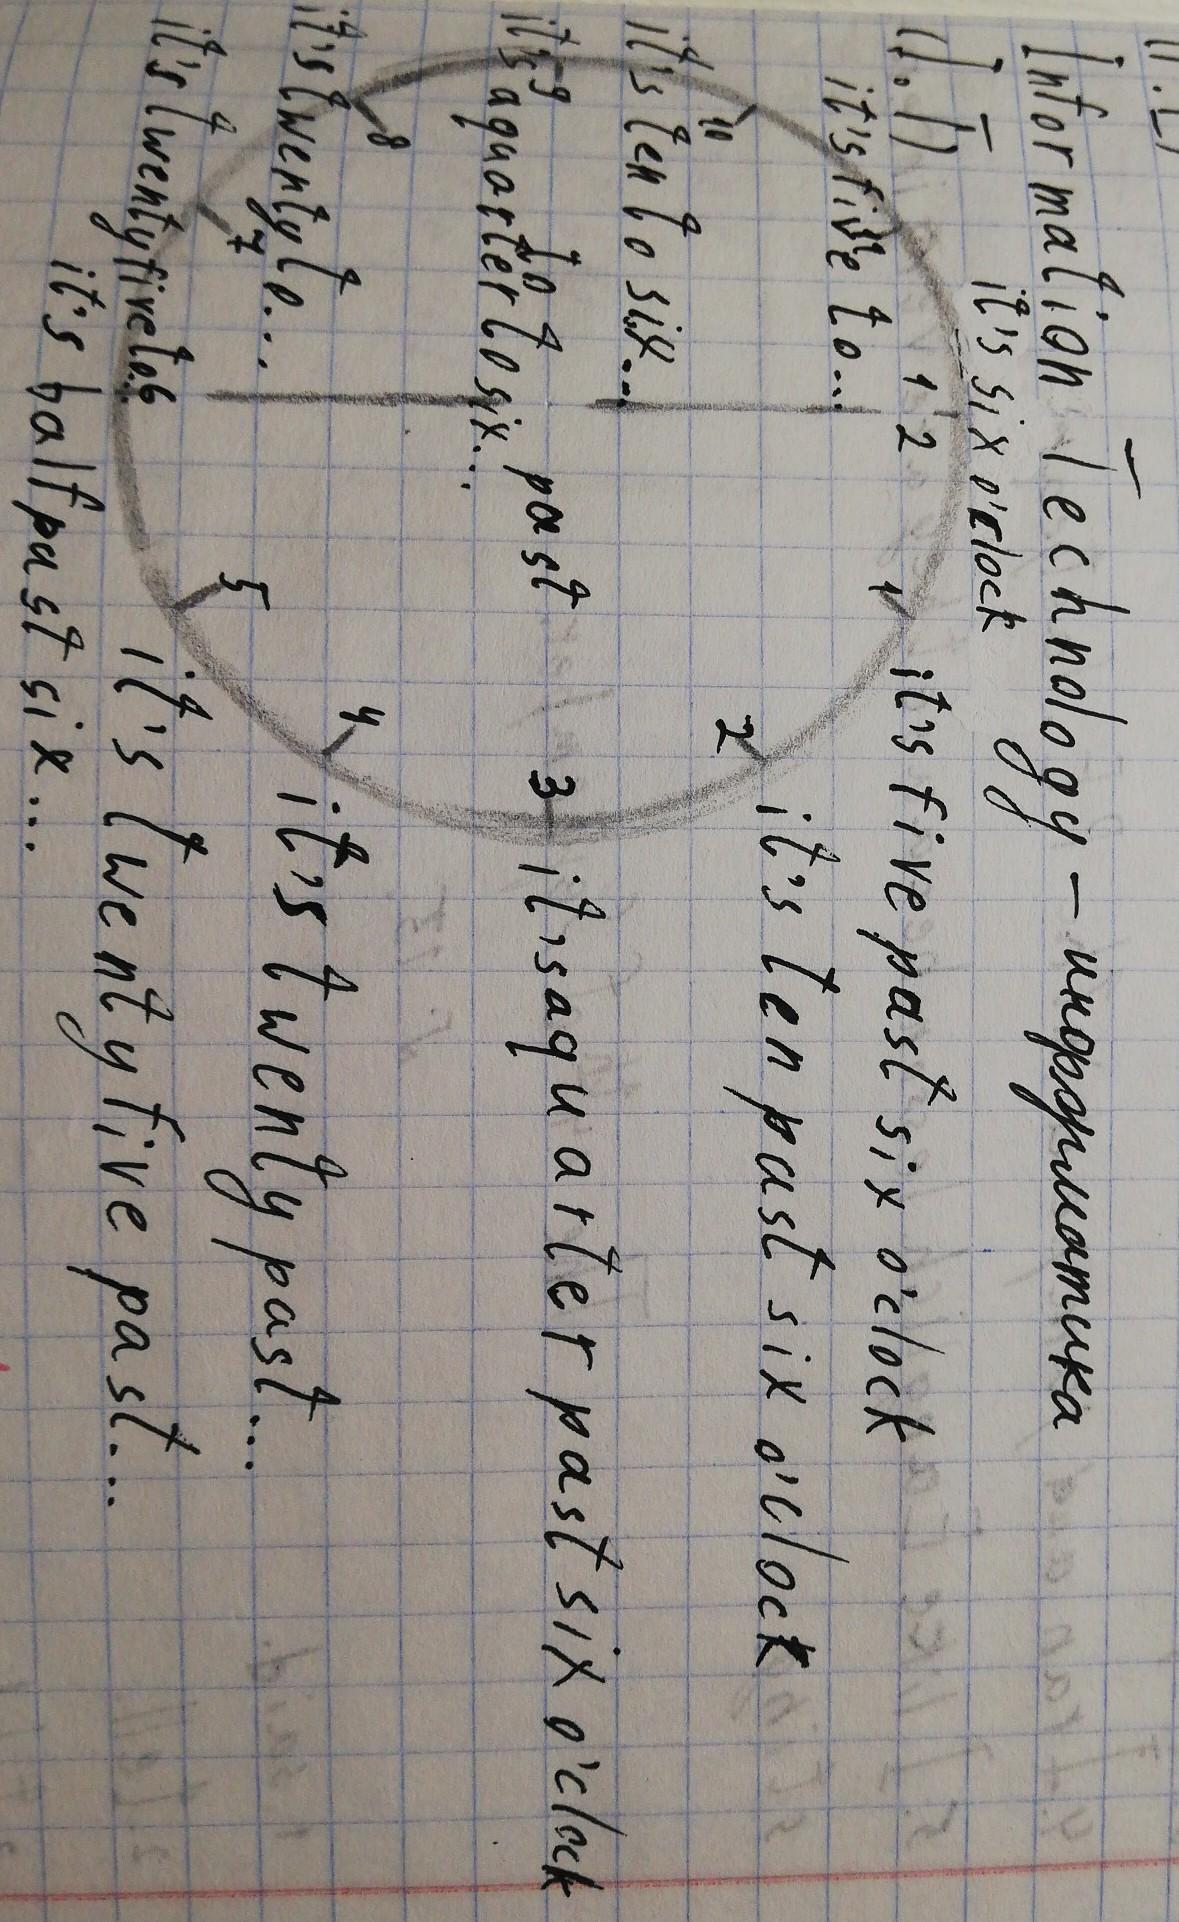 Information Technology – информатика
(I.T)
it's six o'clock
12
1 it's five past six o'clock
it's five to...
11
2 it's ten past six o'clock
10
it's ten to six...
to past
3 it's a quarter past six o'clock
9
it's a quarter to six...
4 it's twenty past...
8
it's twenty to...
5 it's twenty five past...
7
it's twenty five to...
6
it's half past six...